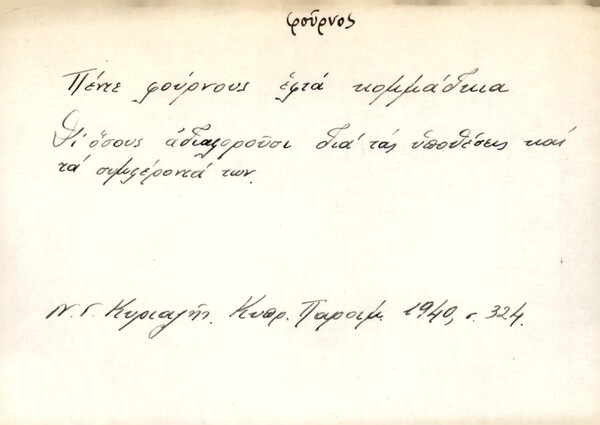 φοῦρνος
Πέντε φούρνους ἑφτά κομμάδκια
Δι' ὅσους ἀδιαφοροῦσι διά τάς ὑποθέσεις καί
τά συμφέροντά των.
Ν. Γ. Κυριαζῆς. Κυπρ. Παροιμ. 1940, σ. 324.